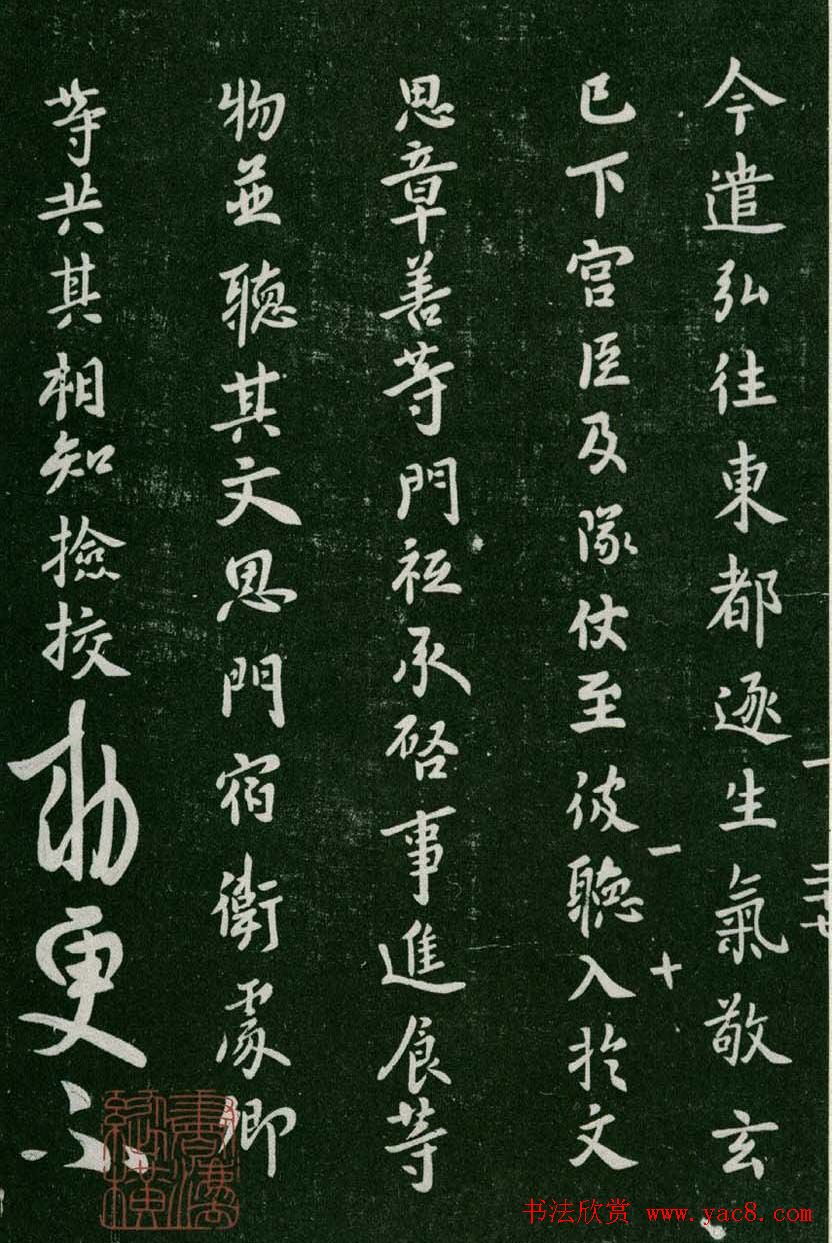 今遣弘往東都逐生氣敬玄
已下宮臣及隊仗至彼聽入於文
思章善等門祗承啓事進食等
物並聽其文思門宿衛處卿
等共其相知撿挍勅更不
書法縱橫
书法欣赏 www.yac8.com